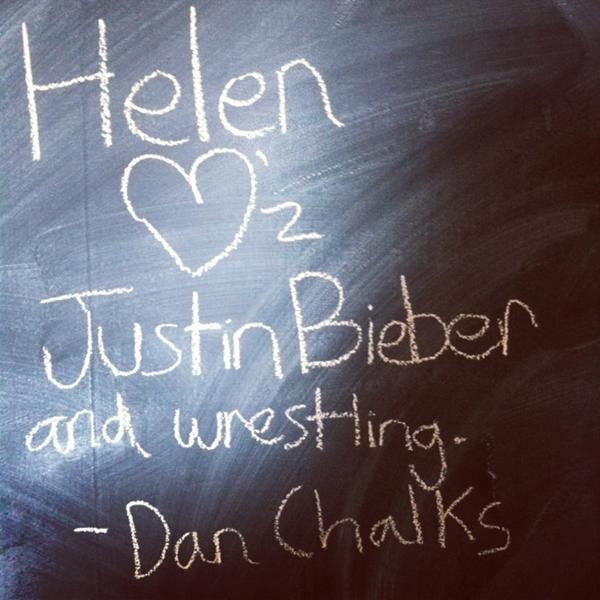 Helen
♡'z
Justin Bieber
and wrestling.
- Dan Chalks